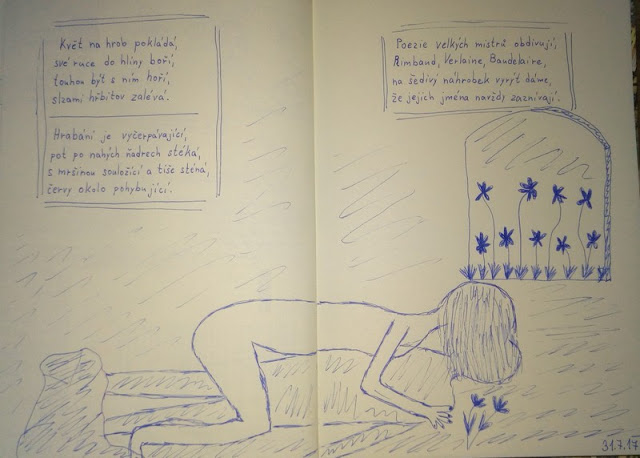 Květ na hrob pokládá,
své ruce do hlíny boří,
touhou být s ním hoří,
slzami hřbitov zalévá.
Hrabání je vyčerpávající,
pot po nahých ňadrech stéká,
s mršinou souložící a tiše sténá,
červy okolo pohybující.
Poezie velkých mistrů obdivují,
Rimbaud, Verlaine, Baudelaire,
na šedivý náhrobek vyrýt dáme,
že jejich jména navždy zaznívají.
31.7.17